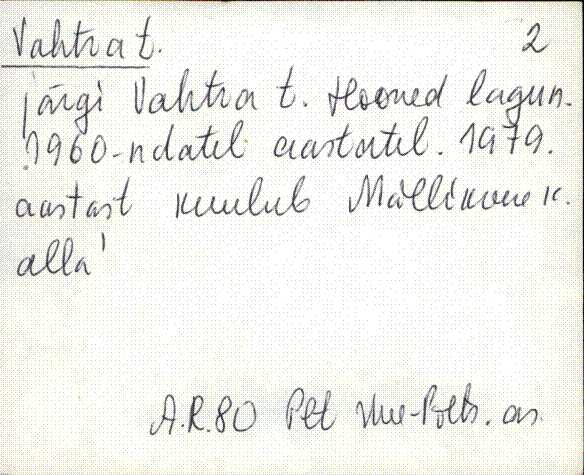 Vahtra t. 2
järgi Vahtra t. Hooned lagun.
1960-ndatel aastatel. 1979.
aastast kuulub Mällikvere k.
alla'
A.R.80 Plt Uue-Põlts. as.